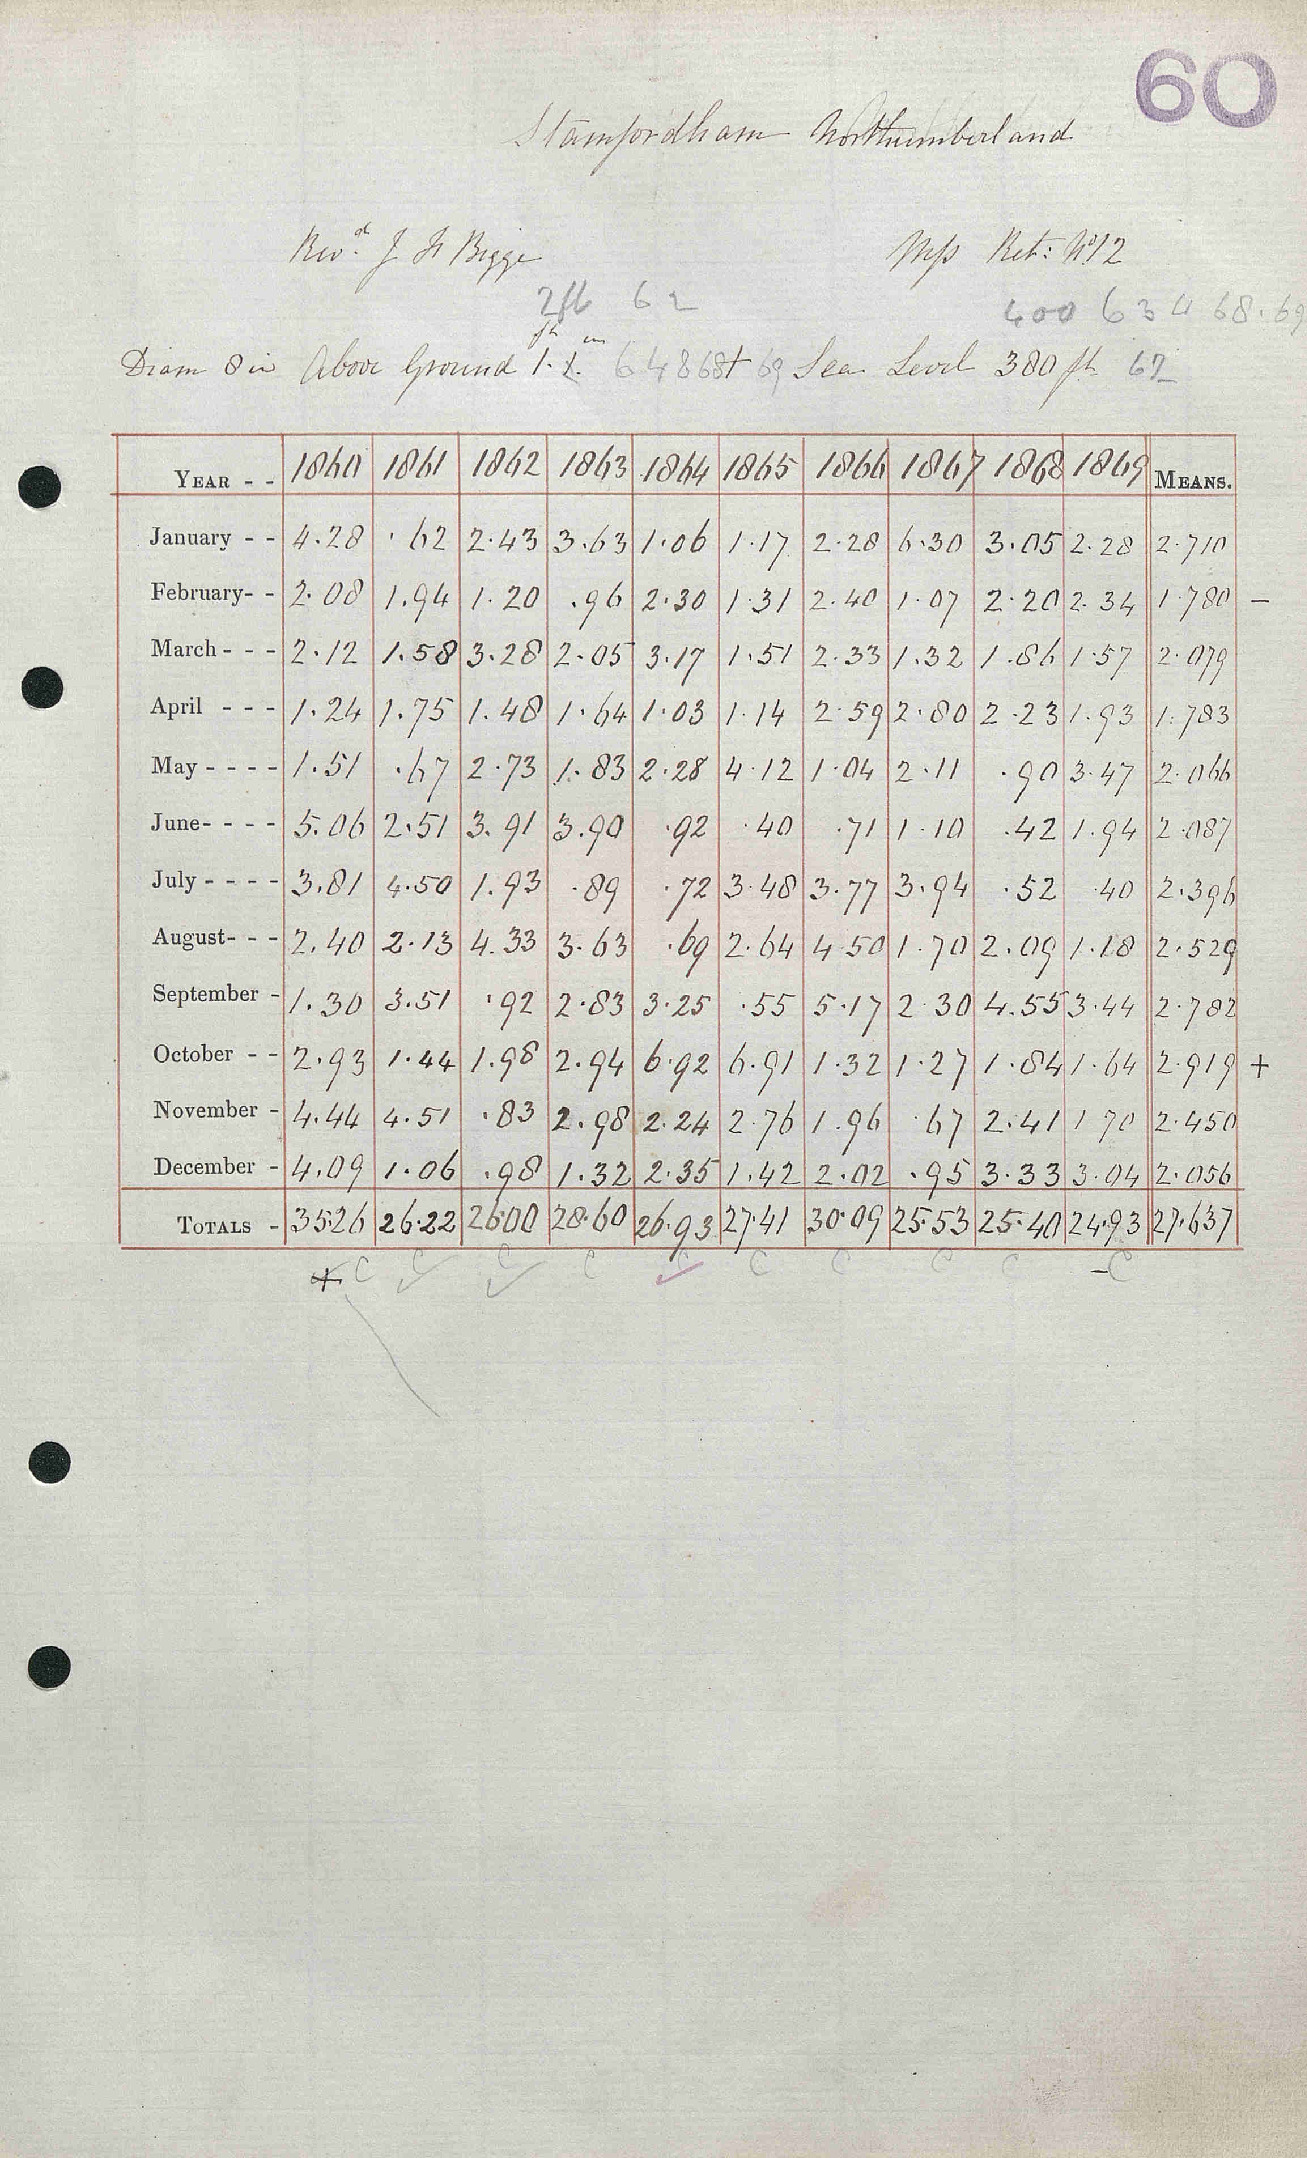 60
Stamfordham Northumberland
Revd. J F Bigge Mss Ret: No 12
2ft 62 400 63 4 68.69
Diam 8 in Above Ground 1 ft. 1 in. 64 8668+ 69 Sea Level 380 ft 62
YEAR - - 1860 1861 1862 1863 1864 1865 1866 1867 1868 1869 MEANS.
January - - 4.28 .62 2.43 3.63 1.06 1.17 2.28 6.30 3.05 2.28 2.710
February- - 2.08 1.94 1.20 .96 2.30 1.31 2.40 1.07 2.20 2.34 1.780 -
March - - - 2.12 1.58 3.28 2.05 3.17 1.51 2.33 1.32 1.86 1.57 2.079
April - - - 1.24 1.75 1.48 1.64 1.03 1.14 2.59 2.80 2.23 1.93 1.783
May - - - - 1.51 .67 2.73 1.83 2.28 4.12 1.04 2.11 .90 3.47 2.066
June- - - - 5.06 2.51 3.91 3.90 .92 .40 .71 1.10 .42 1.94 2.087
July - - - - 3.81 4.50 1.93 .89 .72 3.48 3.77 3.94 .52 .40 2.396
August- - - 2.40 2.13 4.33 3.63 .69 2.64 4.50 1.70 2.09 1.18 2.529
September - 1.30 3.51 .92 2.83 3.25 .55 5.17 2.30 4.55 3.44 2.782
October - - 2.93 1.44 1.98 2.94 6.92 6.91 1.32 1.27 1.84 1.64 2.919 +
November - 4.44 4.51 .83 2.98 2.24 2.76 1.96 .67 2.41 1.70 2.450
December - 4.09 1.06 .98 1.32 2.35 1.42 2.02 .95 3.33 3.04 2.056
TOTALS - 35.26 26.22 26.00 28.60 26.93 27.41 30.09 25.53 25.40 24.93 27.637
+ C C C C C C C C C - C